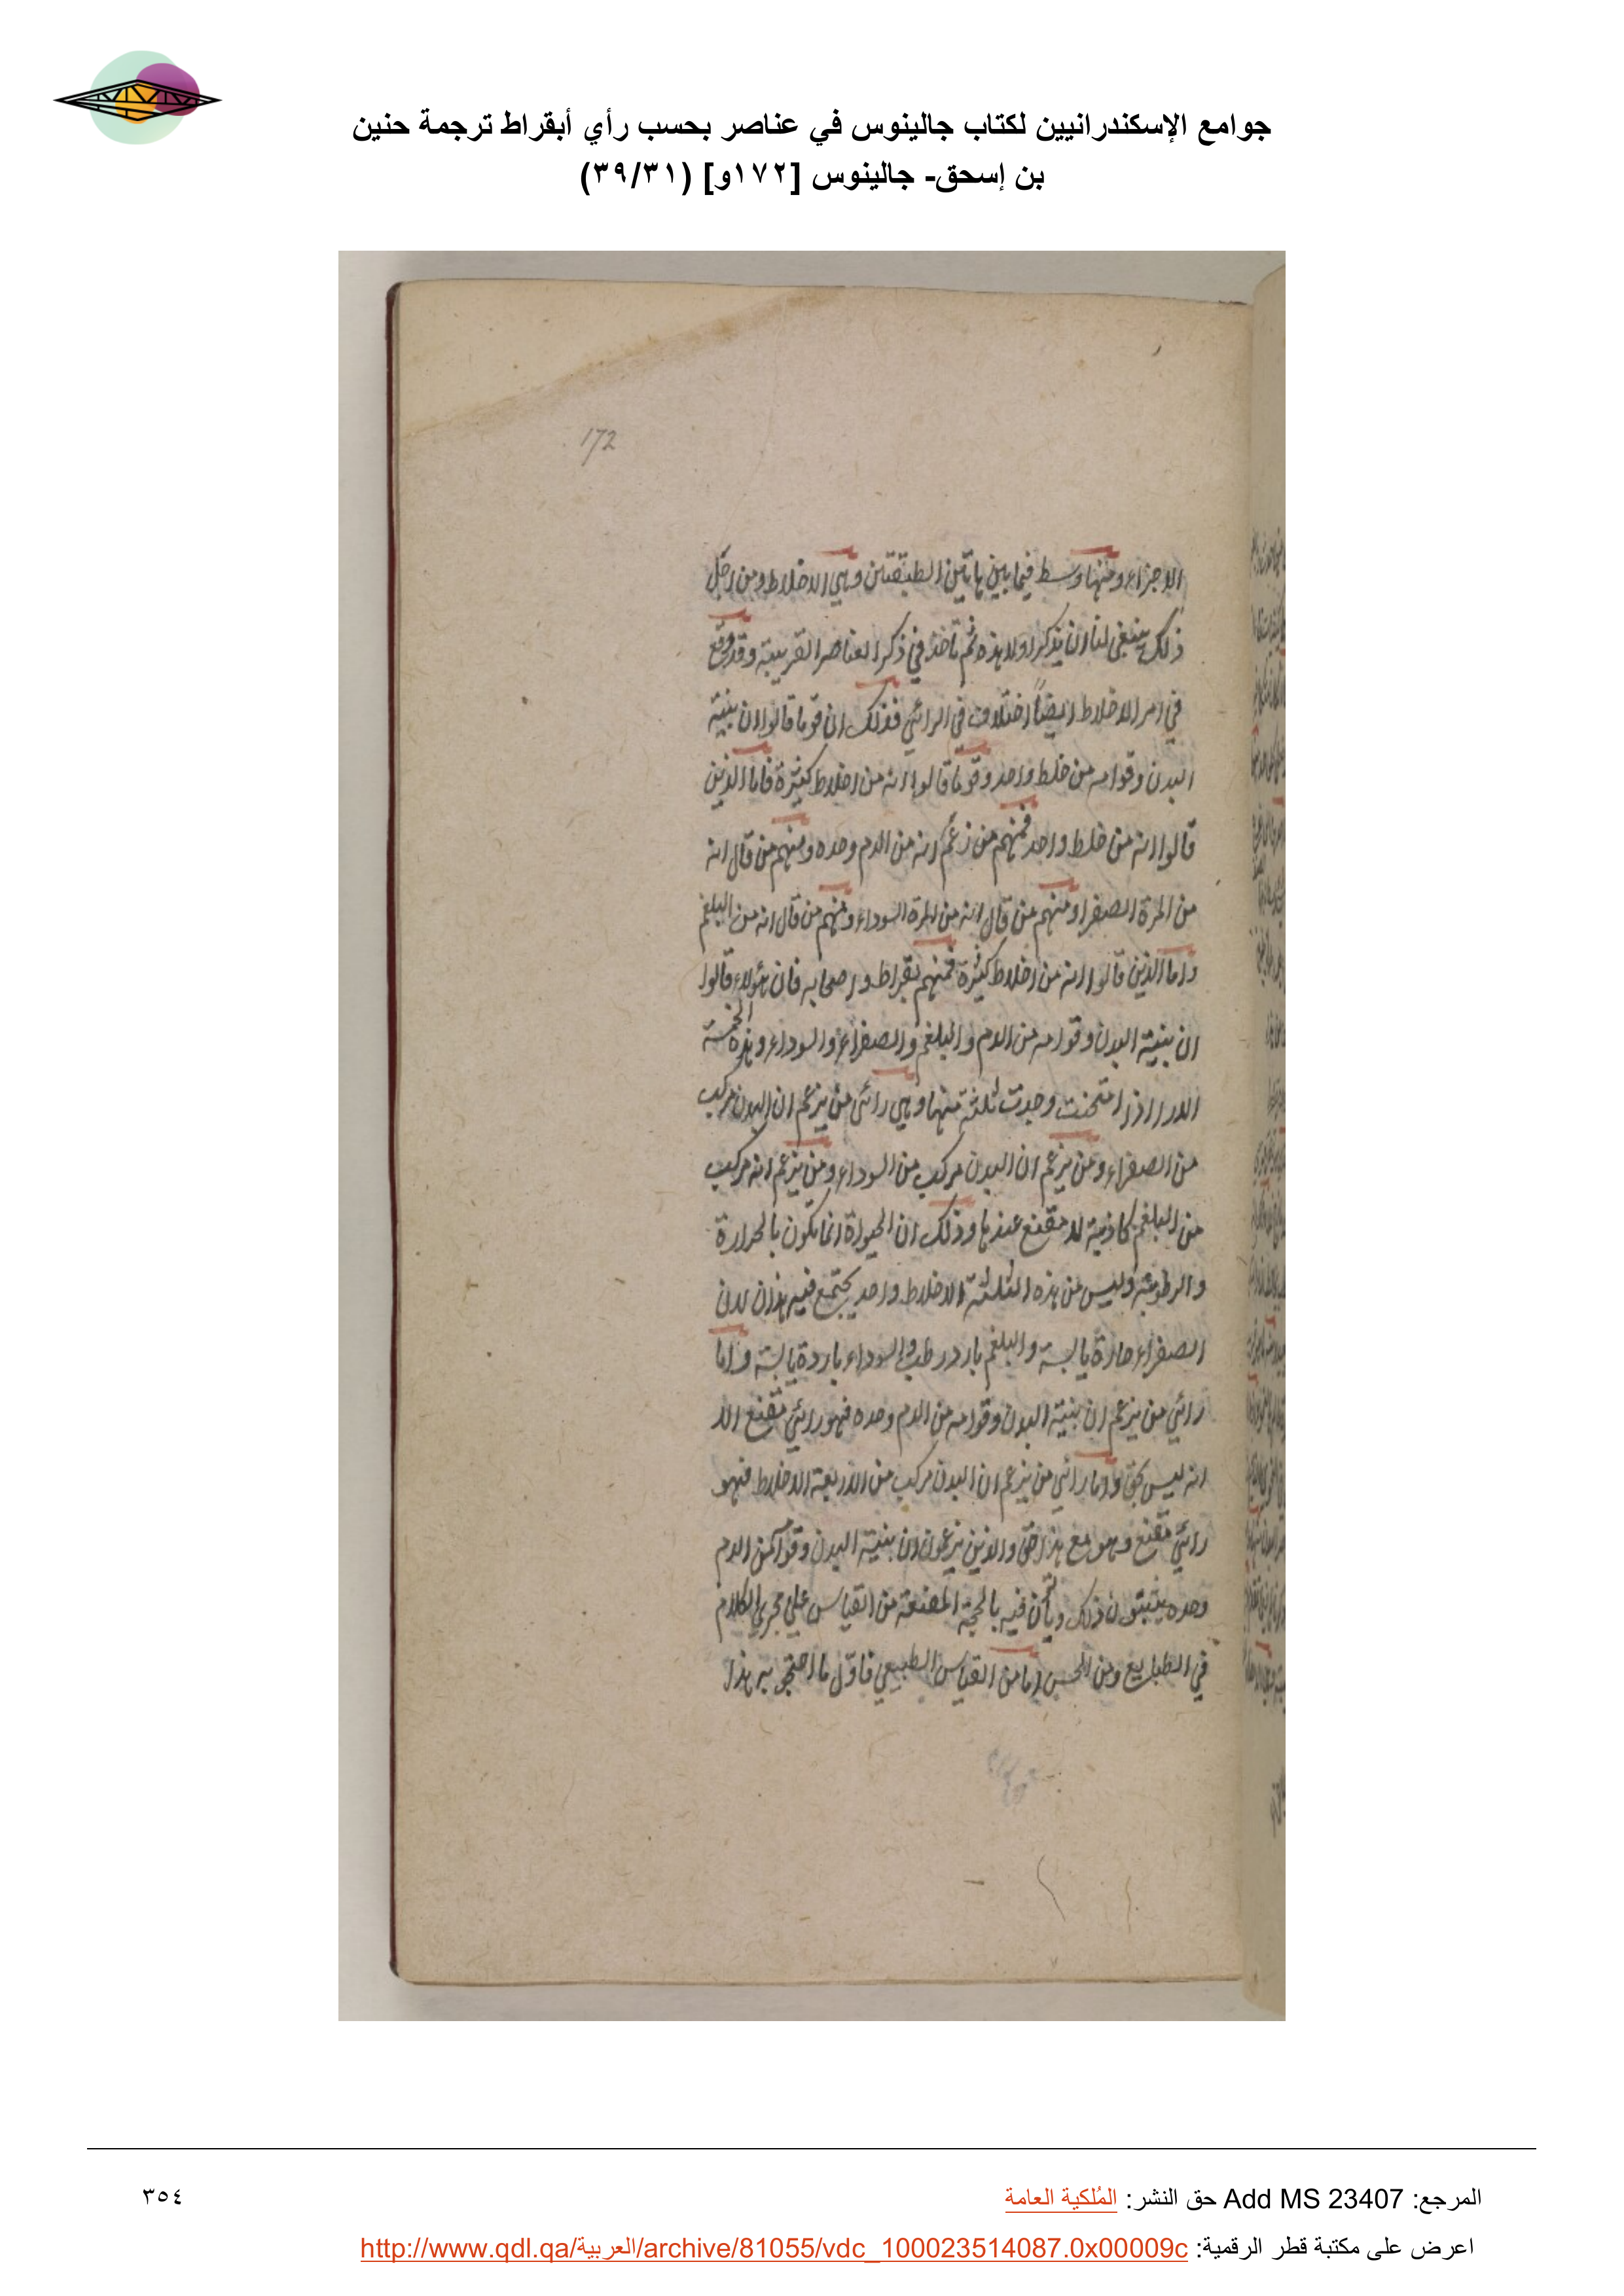 جوامع الإسكندرانيين لكتاب جالينوس في عناصر بحسب رأي أبقراط ترجمة حنين
بن إسحق- جالينوس [١٧٢و] (٣٩/٣١)
172
الاجزاء ومنها وسط فيما بين هاتين الطبقتين وهي الاخلاط ومن اجل
ذلك ينبغي لنا ان نذكر اولا هذه ثم ناخذ في ذكر العناصر القريبة وقد وقع
في امر الاخلاط ايضاً اختلاف في الرائي فذلك ان قوما قالوا ان بنية
البدن وقوامه من خلط واحد وقوما قالوا انه من اخلاط كثيرة فاما الذين
قالوا انه من خلط واحد فمنهم من زعم انه من الدم وحده ومنهم من قال انه
من المرة الصفرا ومنهم من قال انه من المرة السوداء ومنهم من قال انه من البلغم
واما الذين قالوا انه من اخلاط كثيرة فمنهم بقراط واصحابه فان هولاء قالوا
ان بنية البدن وقوامه من الدم والبلغم والصفراء والسوداء وهذه الخمسة
الارا اذا امتحنت وجدت ثلثة منها وهي رائي من يزعم ان البدن مركب
من الصفراء ومن يزعم ان البدن مركب من السوداء ومن يزعم انه مركب
من البلغم كاذبة لا مقنع عندها وذلك ان الحيوة انما تكون بالحرارة
والرطوبة وليس من هذه الثلثة الاخلاط واحد يجتمع فيه هذان لان
الصفراء حارة يابسة والبلغم بارد رطب والسوداء باردة يابسة واما
رائي من يزعم ان بنية البدن وقوامه من الدم وحده فهو رائي مقنع الا
انه ليس بحق واما رائي من يزعم ان البدن مركب من الاربعة الاخلاط فهو
رائي مقنع وهو مع هذا حق والذين يزعمون ان بنية البدن وقوامه من الدم
وحده يثبتون ذلك وياتون فيه بالحجة المقنعة من القياس على مجرى الكلام
في الطبايع ومن الحس اما من القياس الطبيعي فاول ما احتجو به هذا
المرجع: Add MS 23407 حق النشر: المُلكية العامة
٣٥٤
اعرض على مكتبة قطر الرقمية: http://www.qdl.qa/العربية/archive/81055/vdc_100023514087.0x00009c